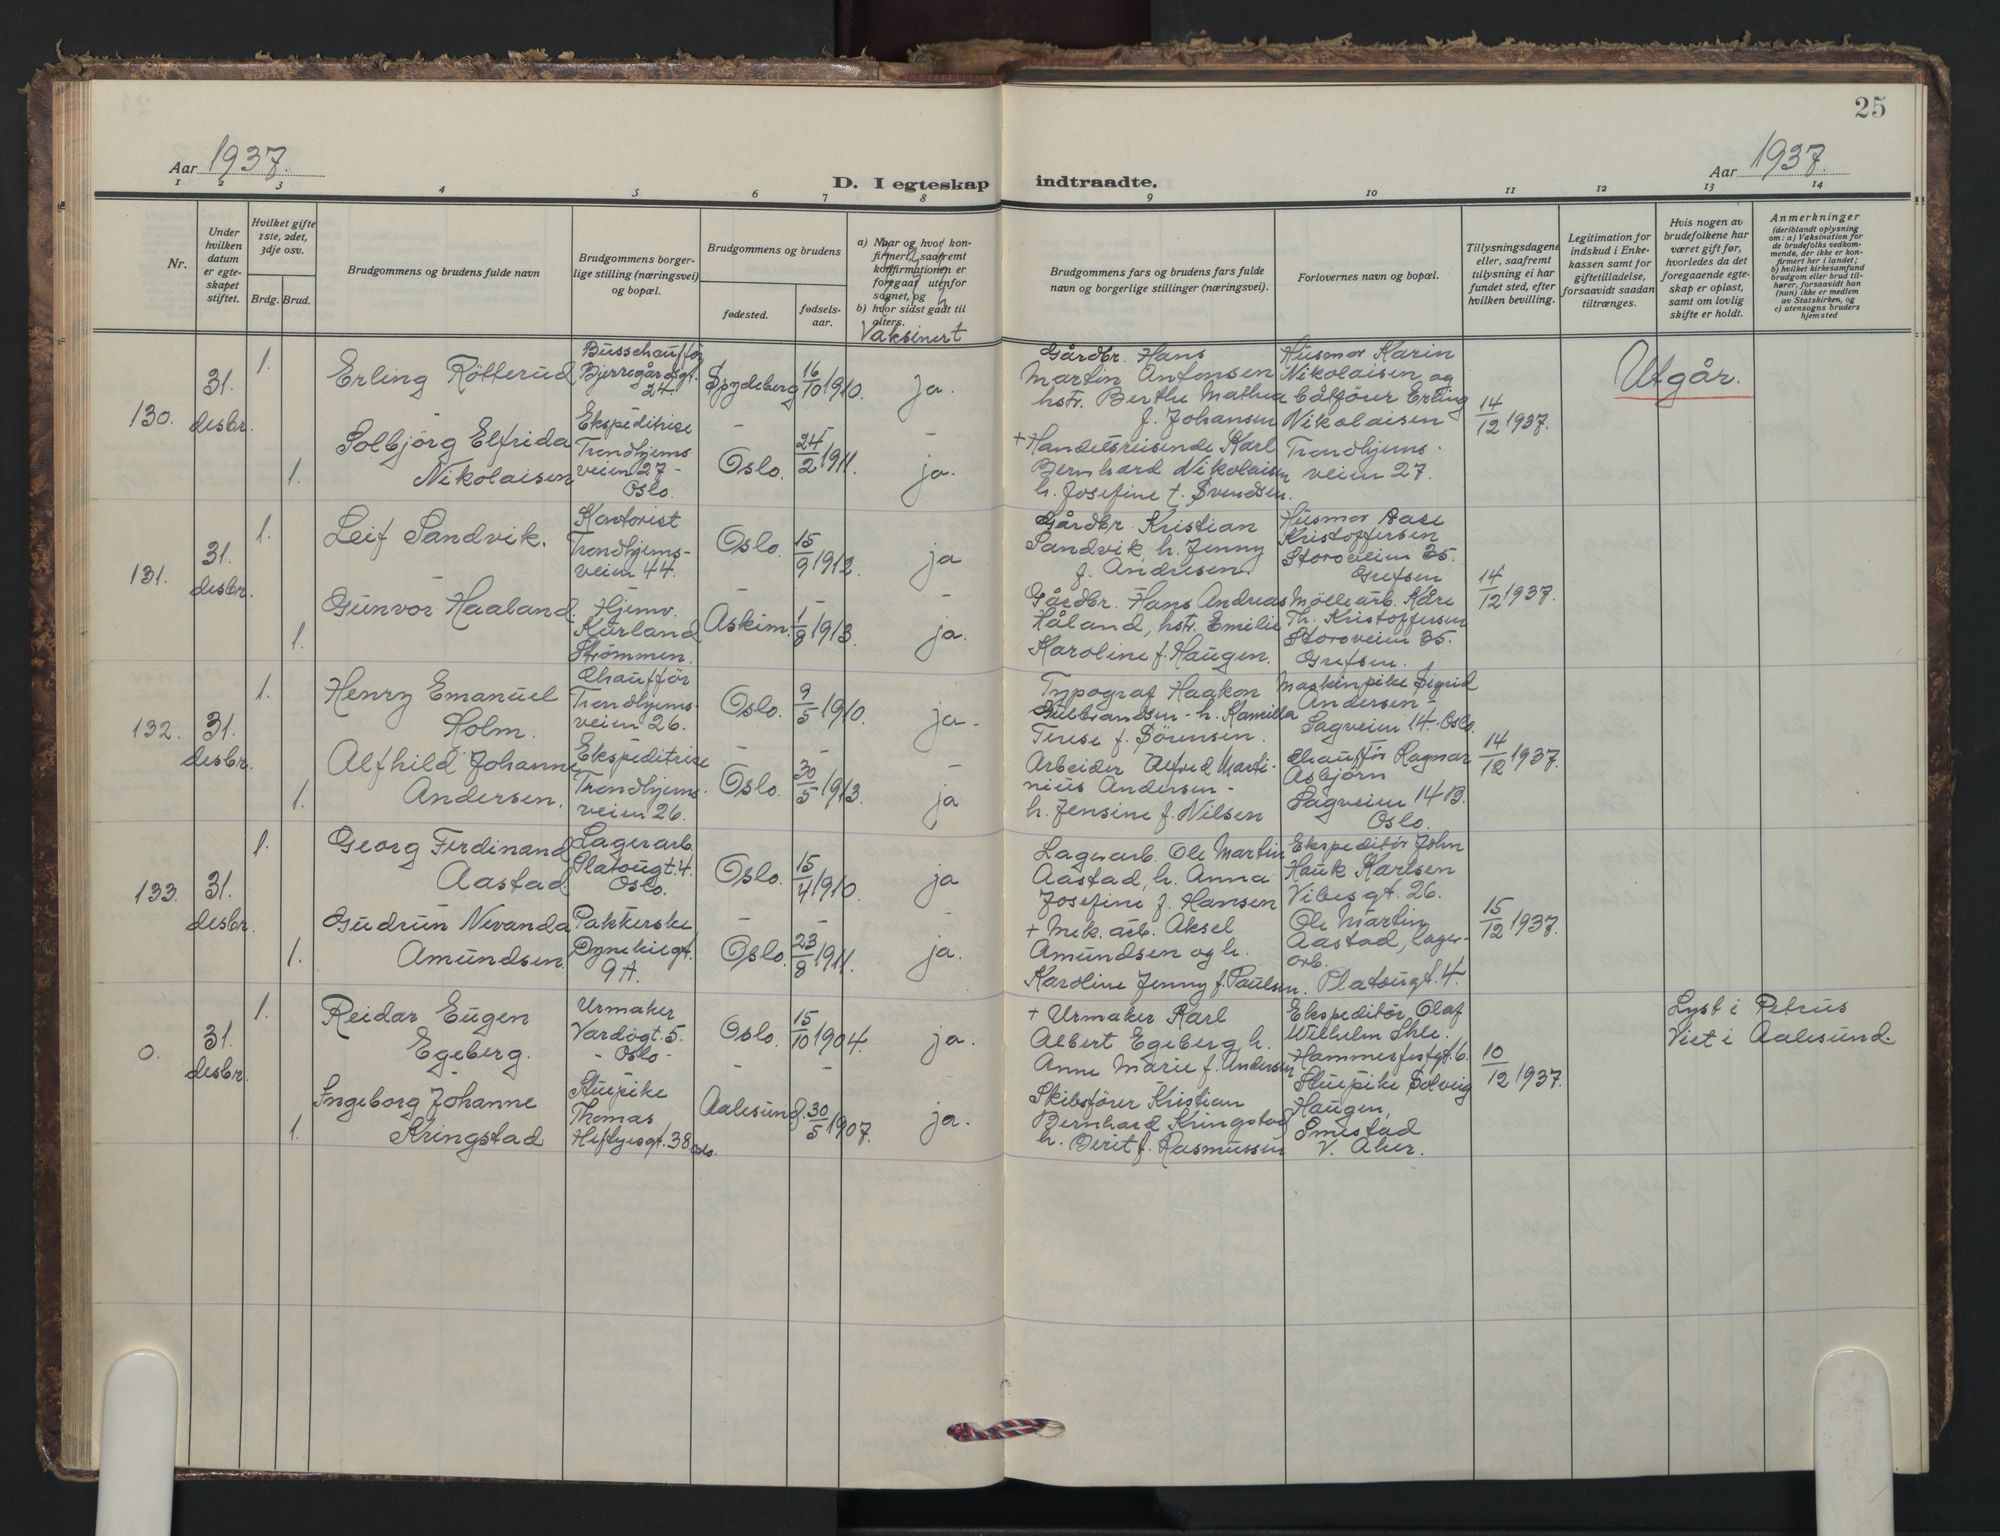 25
Aar 1937.
D. I egteskap indtraadte.
Aar 1937.
1 2 3 4 5 6 7 8 9 10 11 12 13 14
Nr.
Under hvilken datum er egteskapet stiftet.
Hvilket gifte 1ste, 2det, 3dje osv.
Brdg. Brud.
Brudgommens og brudens fulde navn
Brudgommens borgerlige stilling (næringsvei) og bopæl.
Brudgommens og brudens
fødested.
fødselsaar.
a) Naar og hvor konfirmert, saafremt konfirmationen er foregaat utenfor sognet, og
b) hvor sidst gaat til alters.
Vaksinert
Brudgommens fars og brudens fars fulde navn og borgerlige stillinger (næringsvei).
Forlovernes navn og bopæl.
Tillysningsdagene eller, saafremt tillysning ei har fundet sted, efter hvilken bevilling.
Legitimation for indskud i Enkekassen samt for giftetilladelse, forsaavidt saadan tiltrænges.
Hvis nogen av brudefolkene har været gift før, hvorledes da det foregaaende egteskap er opløst, samt om lovlig skifte er holdt.
Anmerkninger
(deriblandt oplysning om: a) Vaksination for de brudefolks vedkommende, der ikke er konfirmert her i landet;
b) hvilket kirkesamfund brudgom eller brud tilhører, forsaavidt han (hun) ikke er medlem av Statskirken, og
c) utensogns bruders hjemsted
130.
31. desbr.
1.
Erling Rötterud
Busschaufför
Bjerregårdsgt. 24.
Spydeberg
16/10 1910.
ja.
Gårdbr. Hans
Martin Antonsen
hstr. Berthe Mathea
f. Johansen
Husmor Karin
Nikolaisen og
båtförer Erling
Nikolaisen
Trondhjems-
veien 27.
14/12 1937.
Utgår.
1.
Solbjörg Elfrida
Nikolaisen
Ekspeditrise
Trondhjems
veien 27 -
Oslo.
Oslo.
24/2 1911.
ja.
+ Handelsreisende Karl
Bernhard Nikolaisen
h. Josefine f. Svendsen.
131.
31. desbr.
1.
Leif Sandvik.
Kontorist
Trondhjems-
veien 44.
Oslo.
15/9 1912.
ja
Gårdbr. Kristian
Sandvik, h. Jenny
f. Andresen.
Husmor Aase
Kristoffersen
Storoveien 35.
Grefsen
14/12 1937.
1.
Gunvor Haaland.
Hjemv.
Kurland
Strömmen.
Askim.
1/8 1913.
ja.
Gårdbr. Hans Andreas
Håland, hstr. Emilie
Karoline f. Haugen.
Möllearb. Kåre
Th. Kristoffersen
Storoveien 35.
Grefsen.
132.
31. desbr.
1.
Henry Emanuel
Holm.
Chaufför
Trondhjems-
veien 26.
Oslo.
9/5 1910.
ja -
Typograf Haakon
Gulbrandsen - h. Kamilla
Terese f. Sörensen.
Maskinpike Sigrid
Andersen -
Sagveien 14. Oslo.
14/12 1937.
1.
Alfhild Johanne
Andersen.
Ekspeditrise
Trondhjems-
veien 26.
Oslo.
30/5 1913.
ja
Arbeider Alfred Marti-
nius Andersen -
h. Jensine f. Nilsen
Chaufför Ragnar
Asbjörn
Sagveien 14 B.
Oslo.
133.
31. desbr.
1.
Georg Ferdinand
Aastad
Lagerarb.
Platougt. 4.
Oslo.
Oslo.
15/4 1910.
ja
Lagerarb. Ole Martin
Aastad, h. Anna
Josefine f. Hansen
Ekspeditör John
Hauk Karlsen
Vibesgt. 26.
15/12 1937.
1.
Gudrun Nevanda
Amundsen.
Pakkerske
Dynekilgt.
9 A.
Oslo.
23/8 1911.
ja.
+ Mek. arb. Aksel
Amundsen og h.
Karoline Jenny f. Paulsen.
Ole Martin
Aastad, lager-
arb.
Platougt. 4.
0.
31. desbr.
1.
Reidar Eugen
Egeberg.
Urmaker
Vardögt. 5.
- Oslo -
Oslo.
15/10 1904.
ja.
+ Urmaker Karl
Albert Egeberg h.
Anne Marie f. Andersen
Ekspeditör Olaf
Wilhelm
Hammesfestgt. 6.
10/12 1937.
Lyst i Petrus
Viet i Aalesund.
1.
Ingeborg Johanne
Kringstad
Stuepike
Thomas
Heftyesgt. 38 Oslo.
Aalesund.
30/5 1907.
ja.
Skibsförer Kristian
Bernhard Kringstad
h. Berit f. Rasmussen
Stuepike Solveig
Haugen,
Smestad
V. Aker.